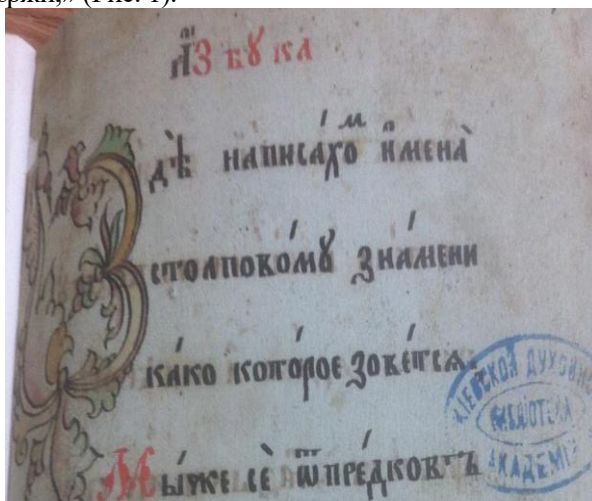 (Рис. 1).
А҆збꙋка
Здѣ̀ написа́хоᷟ и҆мена̀
столпово́мꙋ зна́мени
ка́ко кото́рое зове́тся.
Мы́же сѐ ѿпре́дковъ
КІЕВСКОЙ ДУХОВНО
БИБЛІОТЕКА
АКАДЕМІ